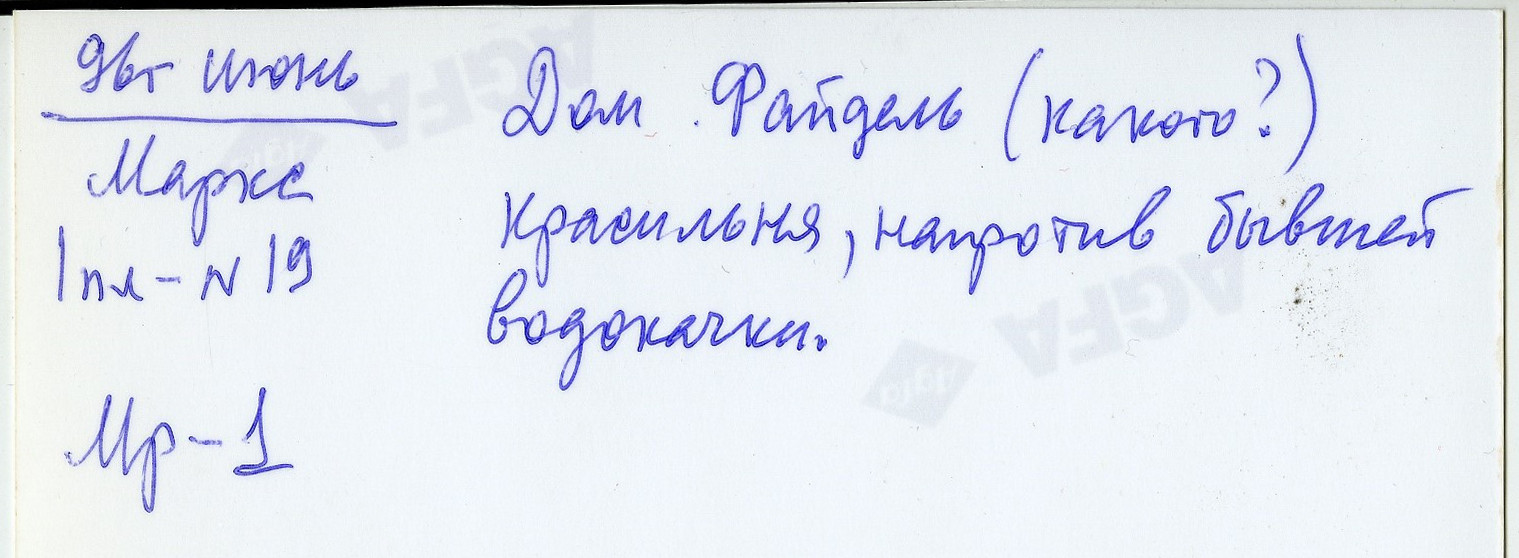 96г июнь
Маркс
1пл-N19
Мр-1
Дом Файдель (какого?)
красильня, напротив бывшей
водокачки.
AGFA
AGFA
Agfa
Agfa